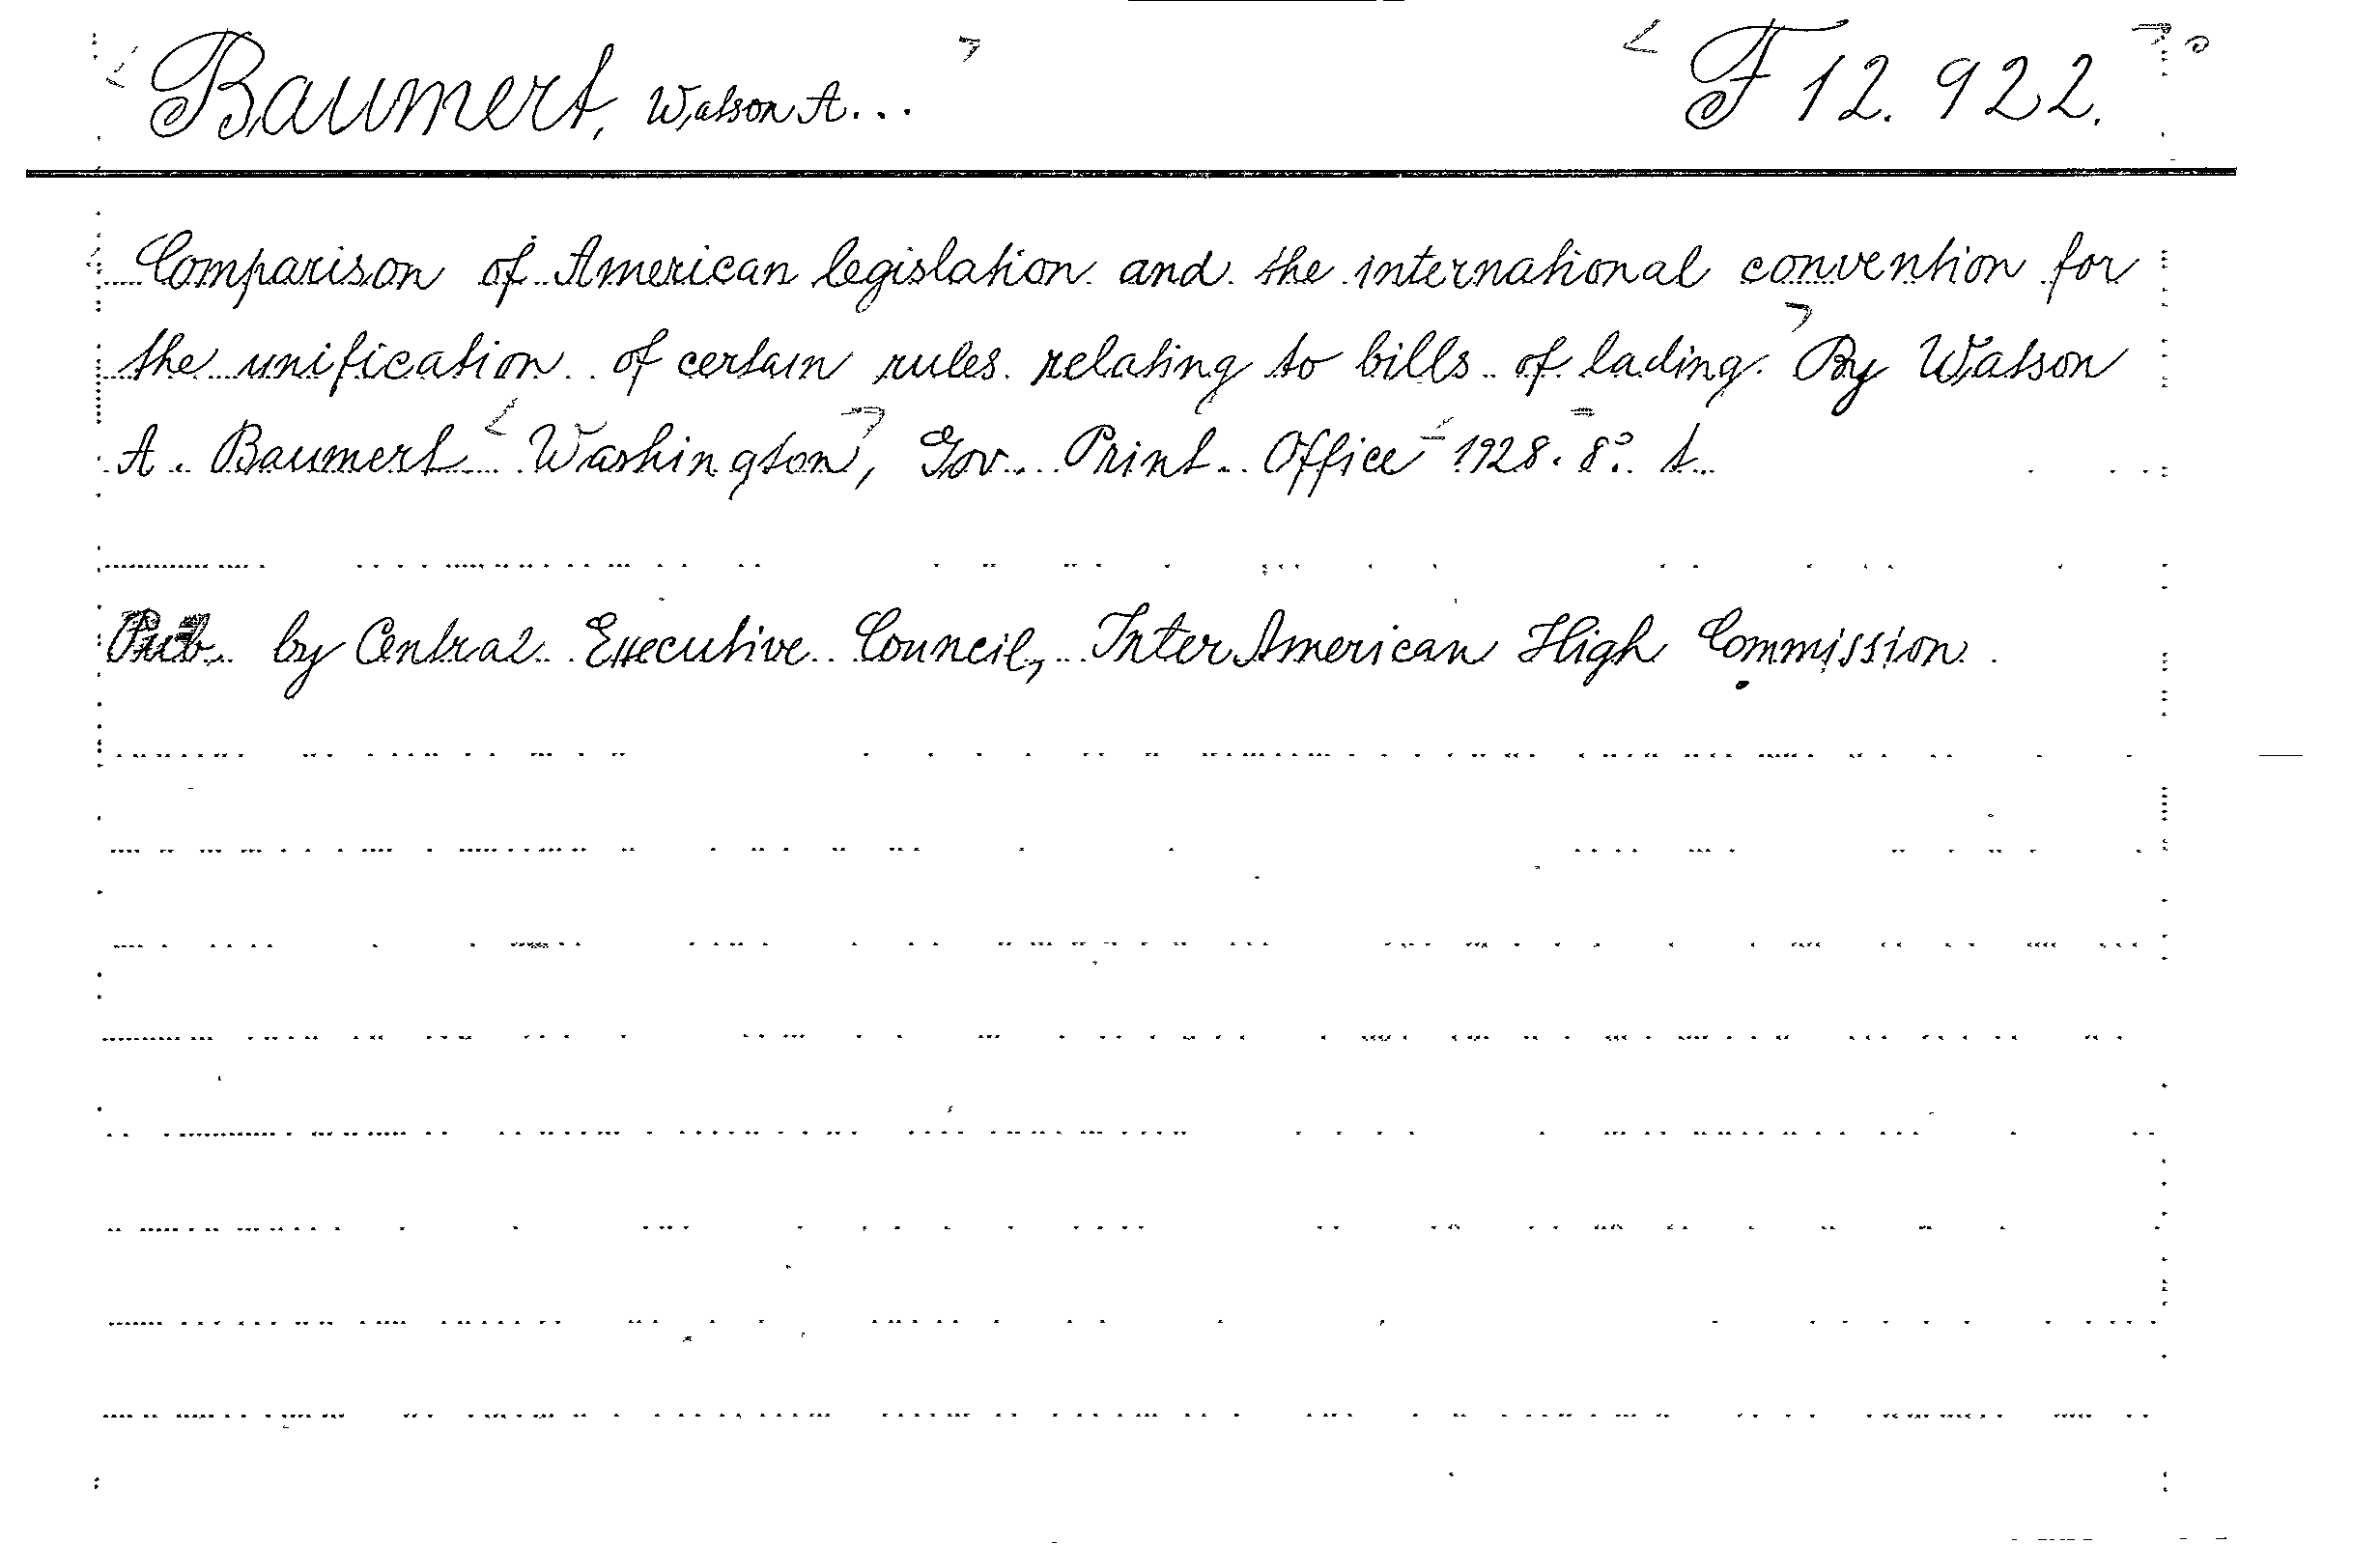 Baumert, Watson A... F 12.922.
Comparison of American legislation and the international convention for
the unification of certain rules relating to bills of lading. By Watson
A. Baumert Washington, Gov. Print. Office 1928. 8º. t.
Pub. by Central Executive Council, Inter American High Commission.